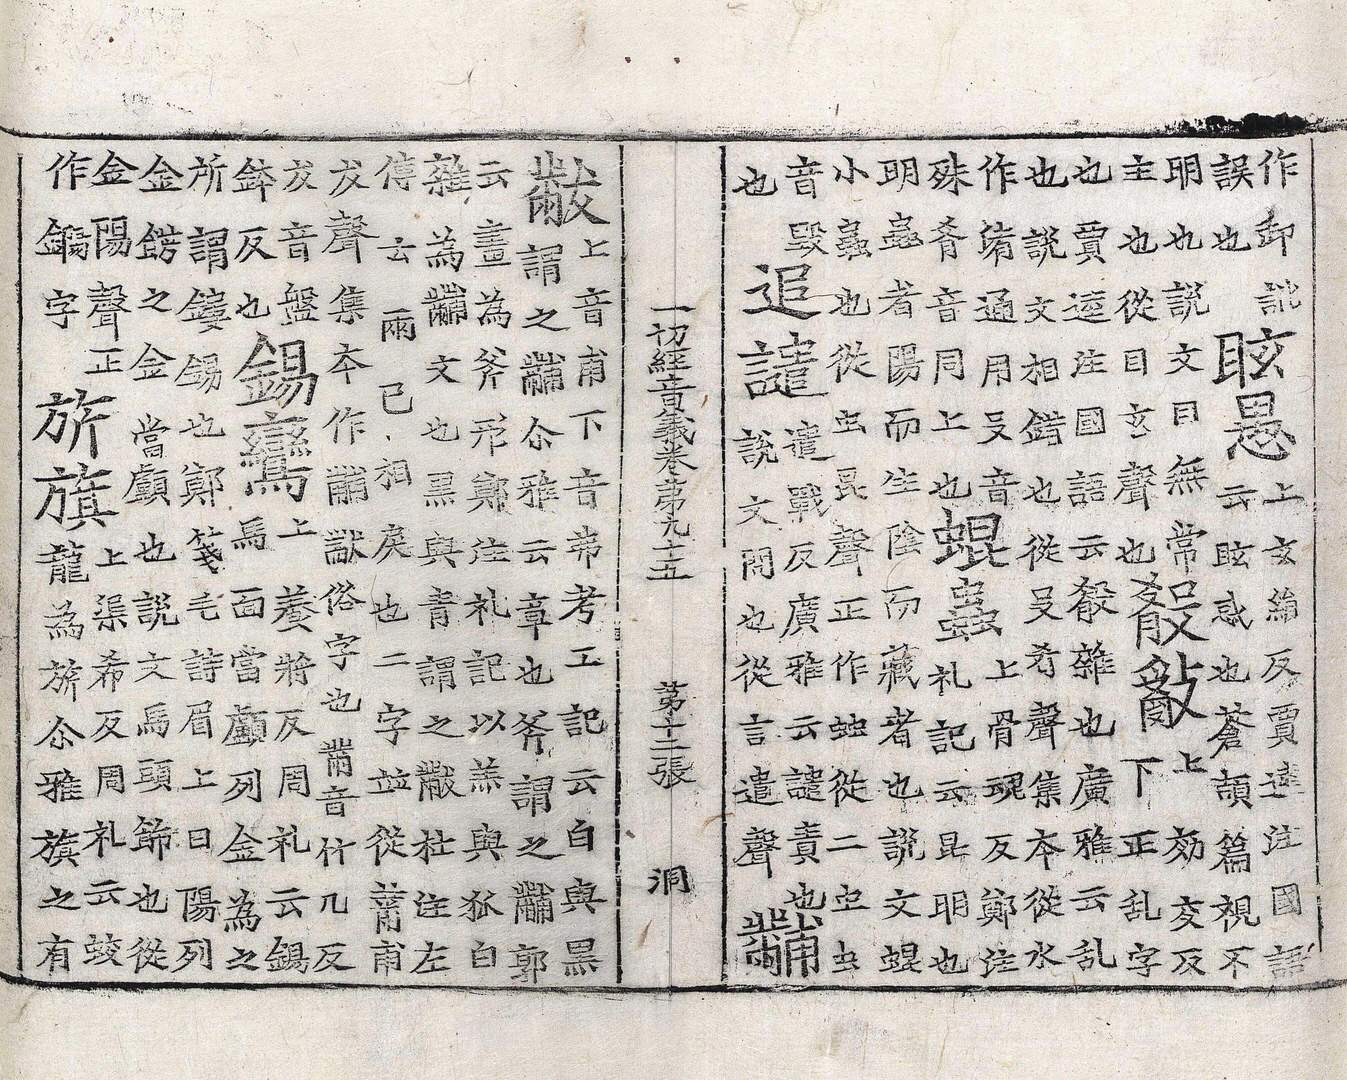 作卸說眩愚上玄絹反賈逵注國語
誤也眩愚云眩惑也蒼頡篇視不
明也說文目無常殽亂上效交反
主也從目玄聲也下正乱字
也賈逵注國語云殽雜也廣雅云乱
也說文相錯也從殳肴聲集本從水
作淆通用殳音上骨魂反鄭注
殊肴音同上也蜫蟲礼記云昆明也
明蟲者陽而生陰而藏者也說文蜫
小蟲也從虫昆聲正作䖵從二虫虫
音毀遣戰反廣雅云譴責也
也追譴說文問也從言遣聲黼
一切經音義卷第九十五 第十二張 洞
黻上音甫下音弗考工記云白與黑
謂之黼尒雅云章也斧謂之黼郭
云畫為斧形鄭注礼記以羔與狐白
雜為黼文也黑與青謂之黻杜注左
傳云兩已相戾也二字並從黹甫
犮聲集本作黼猷俗字也黹音竹几反
犮音盤鍚鸞上養將反周礼云鍚
鉢反也馬面當顱列金為之
所謂鏤鍚也鄭箋毛詩眉上曰陽列
金鎊之金當顱也說文馬頭飾也從
金陽聲正上渠希反周礼云蛟
作鐊字旂旗龍為旂尒雅旗之有